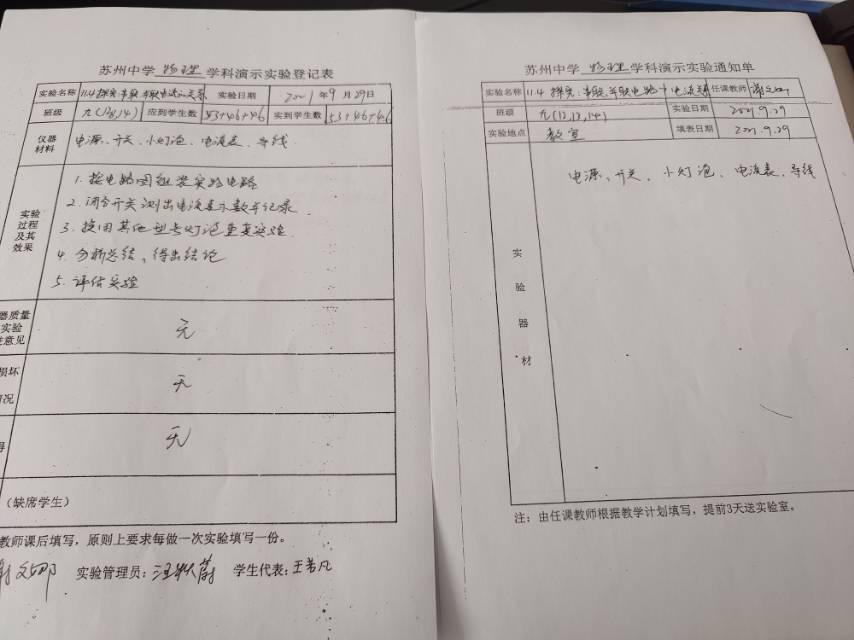 苏州中学 物理 学科演示实验登记表
实验名称 11.4 探究串联、并联电流的关系 实验日期 2021年9月29日
班级 九(12,13,14) 应到学生数 53+46+46 实到学生数 53+46+46
仪器材料 电源、开关、小灯泡、电流表、导线
实验过程及其效果
1. 按电路图组装实验电路
2. 闭合开关测出电流表示数并记录
3. 换用其他型号灯泡重复实验
4. 分析总结、得出结论
5. 评估实验
器质量
实验
意见
无
损坏
情况
无
无
（缺席学生）
教师课后填写，原则上要求每做一次实验填写一份。
实验管理员： 学生代表：王若凡
苏州中学 物理 学科演示实验通知单
实验名称 11.4 探究串联、并联电路中电流 任课教师
班级 九(12,13,14) 实验日期 2021.9.29
实验地点 教室 填表日期 2021.9.29
实验器材
电源、开关、小灯泡、电流表、导线
注：由任课教师根据教学计划填写，提前3天送实验室。